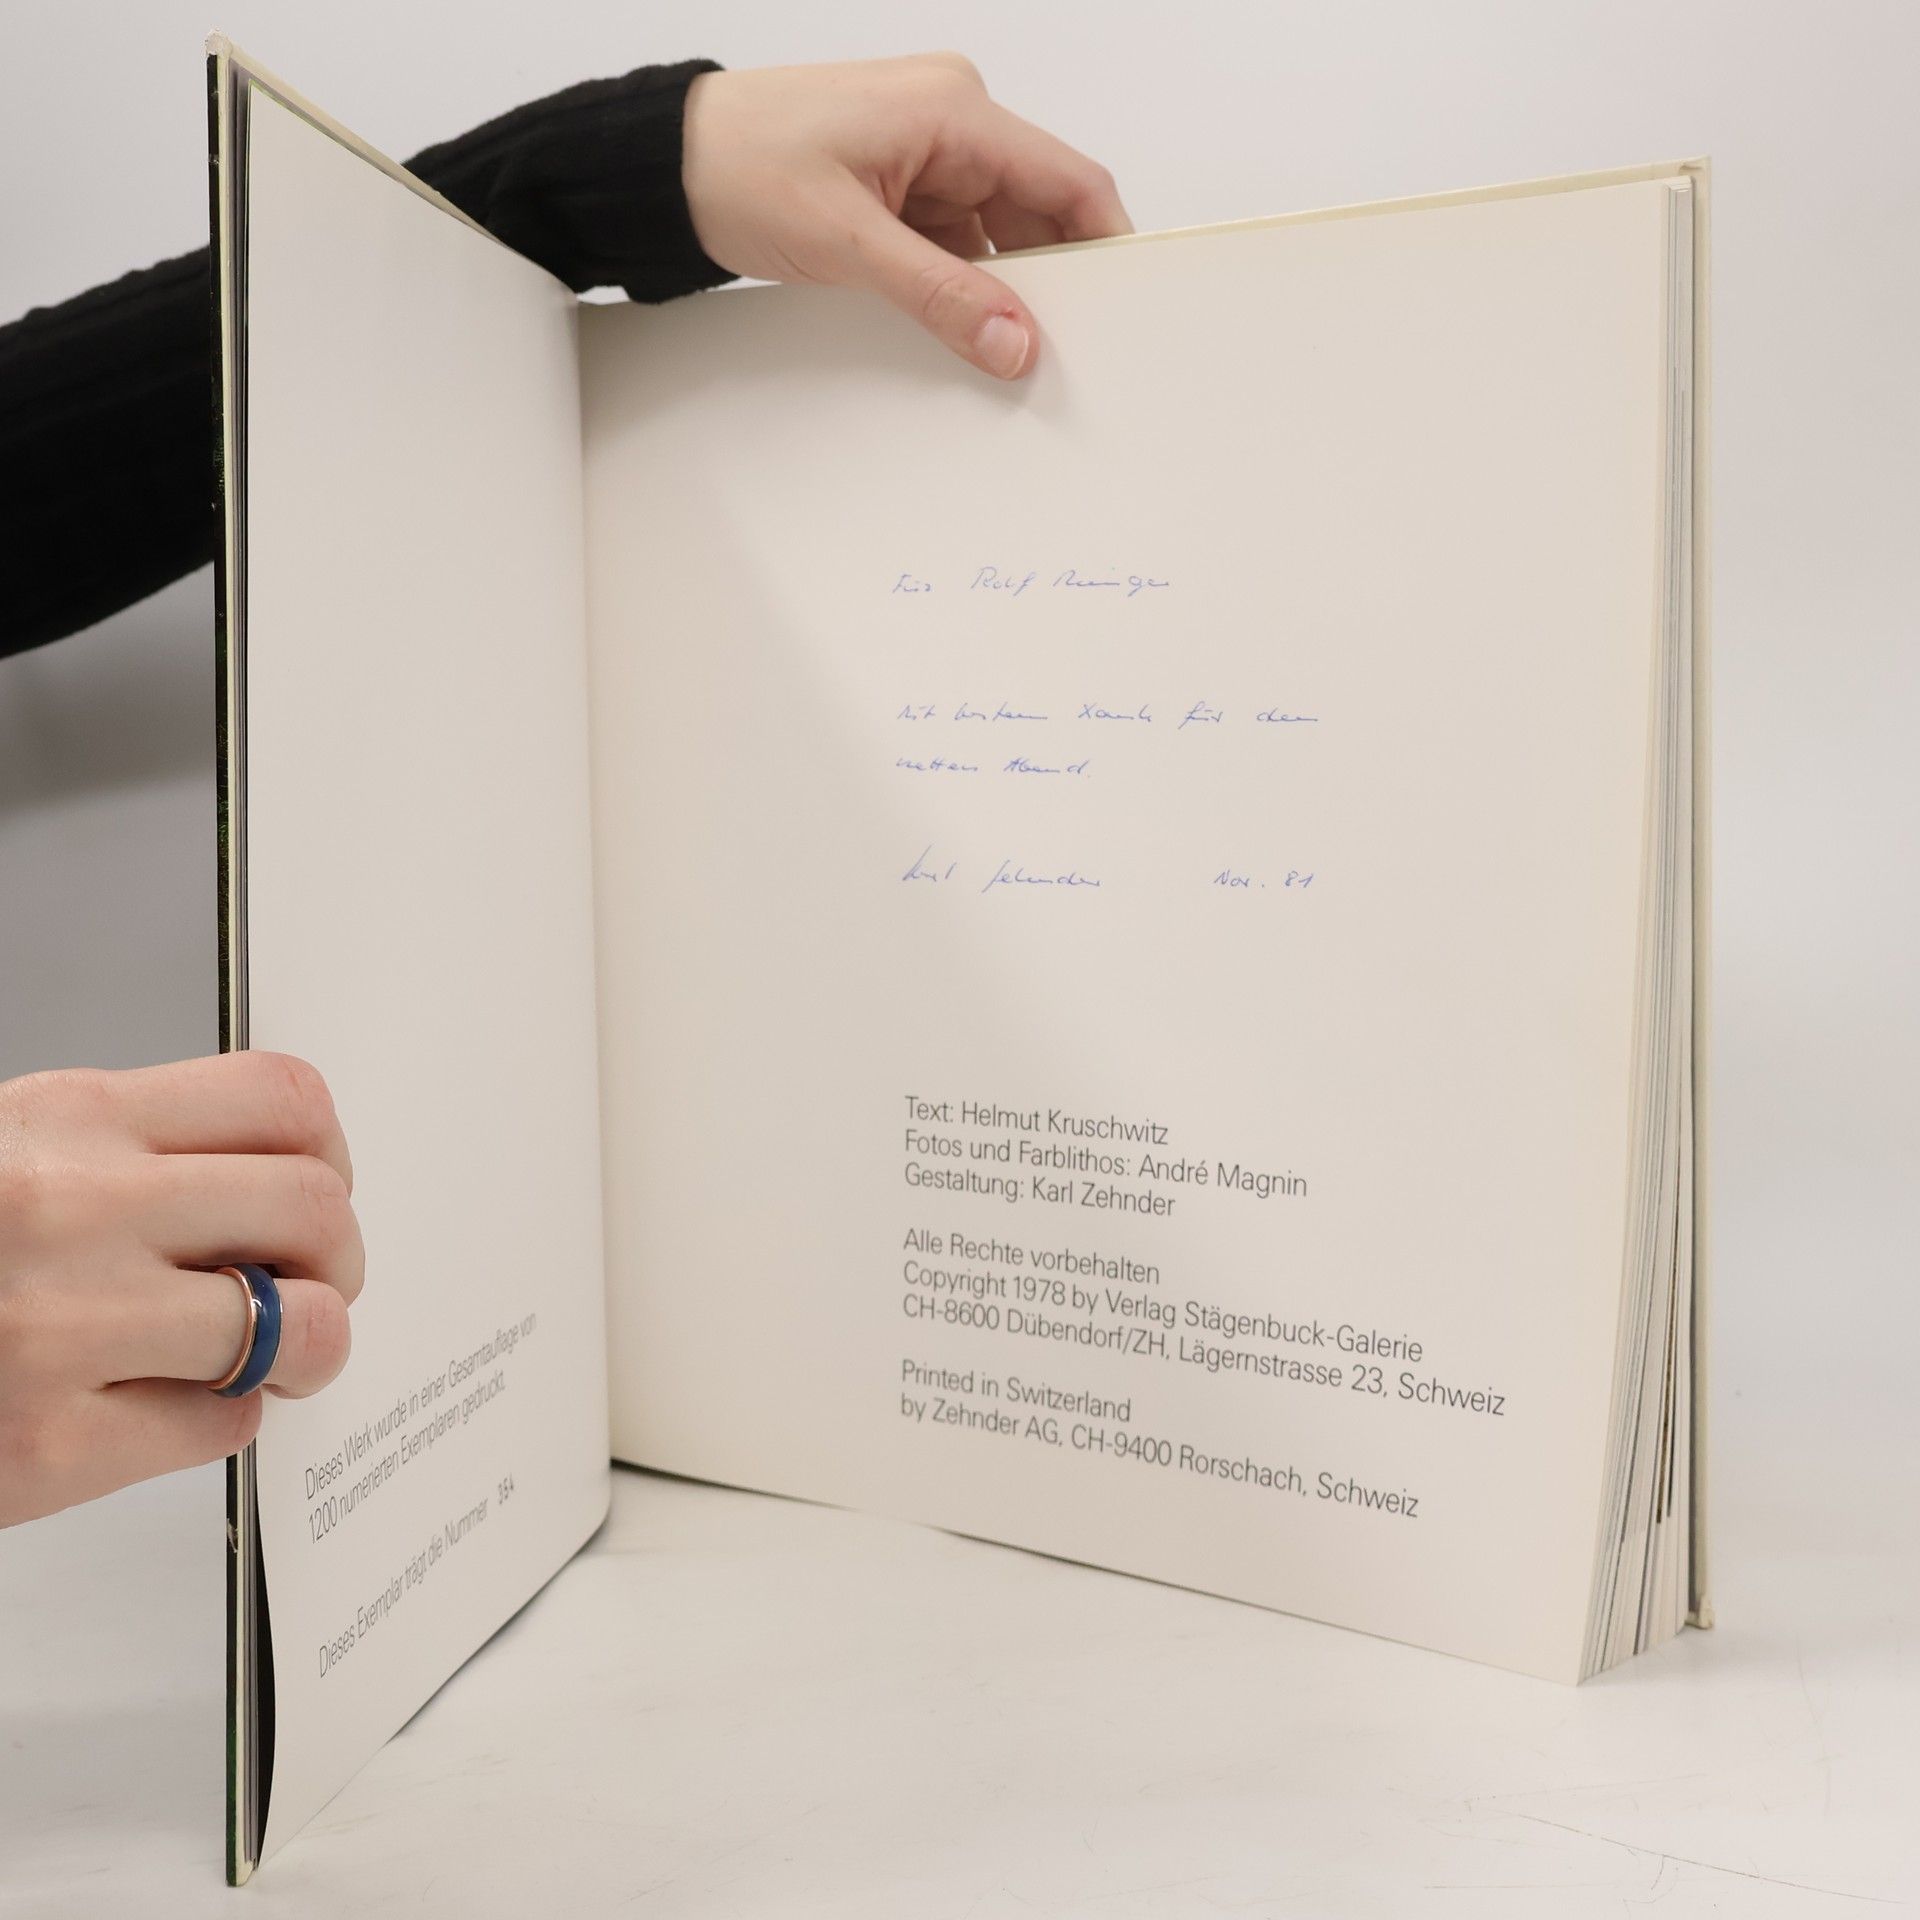 Dieses Werk wurde in einer Gesamtauflage von
1200 numerierten Exemplaren gedruckt.
Dieses Exemplar trägt die Nummer 354
Für Rolf
Mit bestem Dank für den
netten Abend.
Karl Zehnder Nov. 81
Text: Helmut Kruschwitz
Fotos und Farblithos: André Magnin
Gestaltung: Karl Zehnder
Alle Rechte vorbehalten
Copyright 1978 by Verlag Stägenbuck-Galerie
CH-8600 Dübendorf/ZH, Lägernstrasse 23, Schweiz
Printed in Switzerland
by Zehnder AG, CH-9400 Rorschach, Schweiz